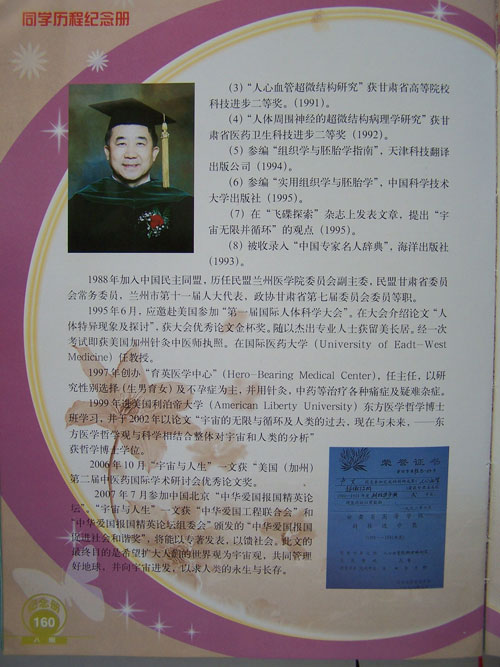 同学历程纪念册
（3）“人心血管超微结构研究”获甘肃省高等院校
科技进步二等奖。（1991）。
（4）“人体周围神经的超微结构病理学研究”获甘
肃省医药卫生科技进步二等奖（1992）。
（5）参编“组织学与胚胎学指南”，天津科技翻译
出版公司（1994）。
（6）参编“实用组织学与胚胎学”，中国科学技术
大学出版社（1995）。
（7）在“飞碟探索”杂志上发表文章，提出“宇
宙无限并循环”的观点（1995）。
（8）被收录入“中国专家名人辞典”，海洋出版社
（1993）。
1988年加入中国民主同盟，历任民盟兰州医学院委员会副主委，民盟甘肃省委员
会常务委员，兰州市第十一届人大代表，政协甘肃省第七届委员会委员等职。
1995年6月，应邀赴美国参加“第一届国际人体科学大会”。在大会介绍论文“人
体特异现象及探讨”，获大会优秀论文金杯奖。随以杰出专业人士获留美长居。经一次
考试即获美国加州针灸中医师执照。在国际医药大学（University of Eadt—West
Medicine）任教授。
1997年创办“育英医学中心”（Hero—Bearing Medical Center），任主任，以研
究性别选择（生男育女）及不孕症为主，并用针灸，中药等治疗各种痛症及疑难杂症。
1999年进美国利治帝大学（American Liberty University）东方医学哲学博士
班学习，并于2002年以论文“宇宙的无限与循环及人类的过去，现在与未来，——东
方医学哲学观与科学相结合整体对宇宙和人类的分析”
获哲学博士学位。
2006年10月“宇宙与人生”一文获“美国（加州）
第二届中医药国际学术研讨会优秀论文奖。
2007年7月参加中国北京“中华爱国报国精英论
坛”。“宇宙与人生”一文获“中华爱国工程联合会”和
“中华爱国报国精英论坛组委会”颁发的“中华爱国报国
促进社会和谐奖”，将能以专著发表，以馈社会。此文的
最终目的是希望扩大人们的世界观为宇宙观，共同管理
好地球，并向宇宙进发，以求人类的永生与长存。
荣誉证书
160